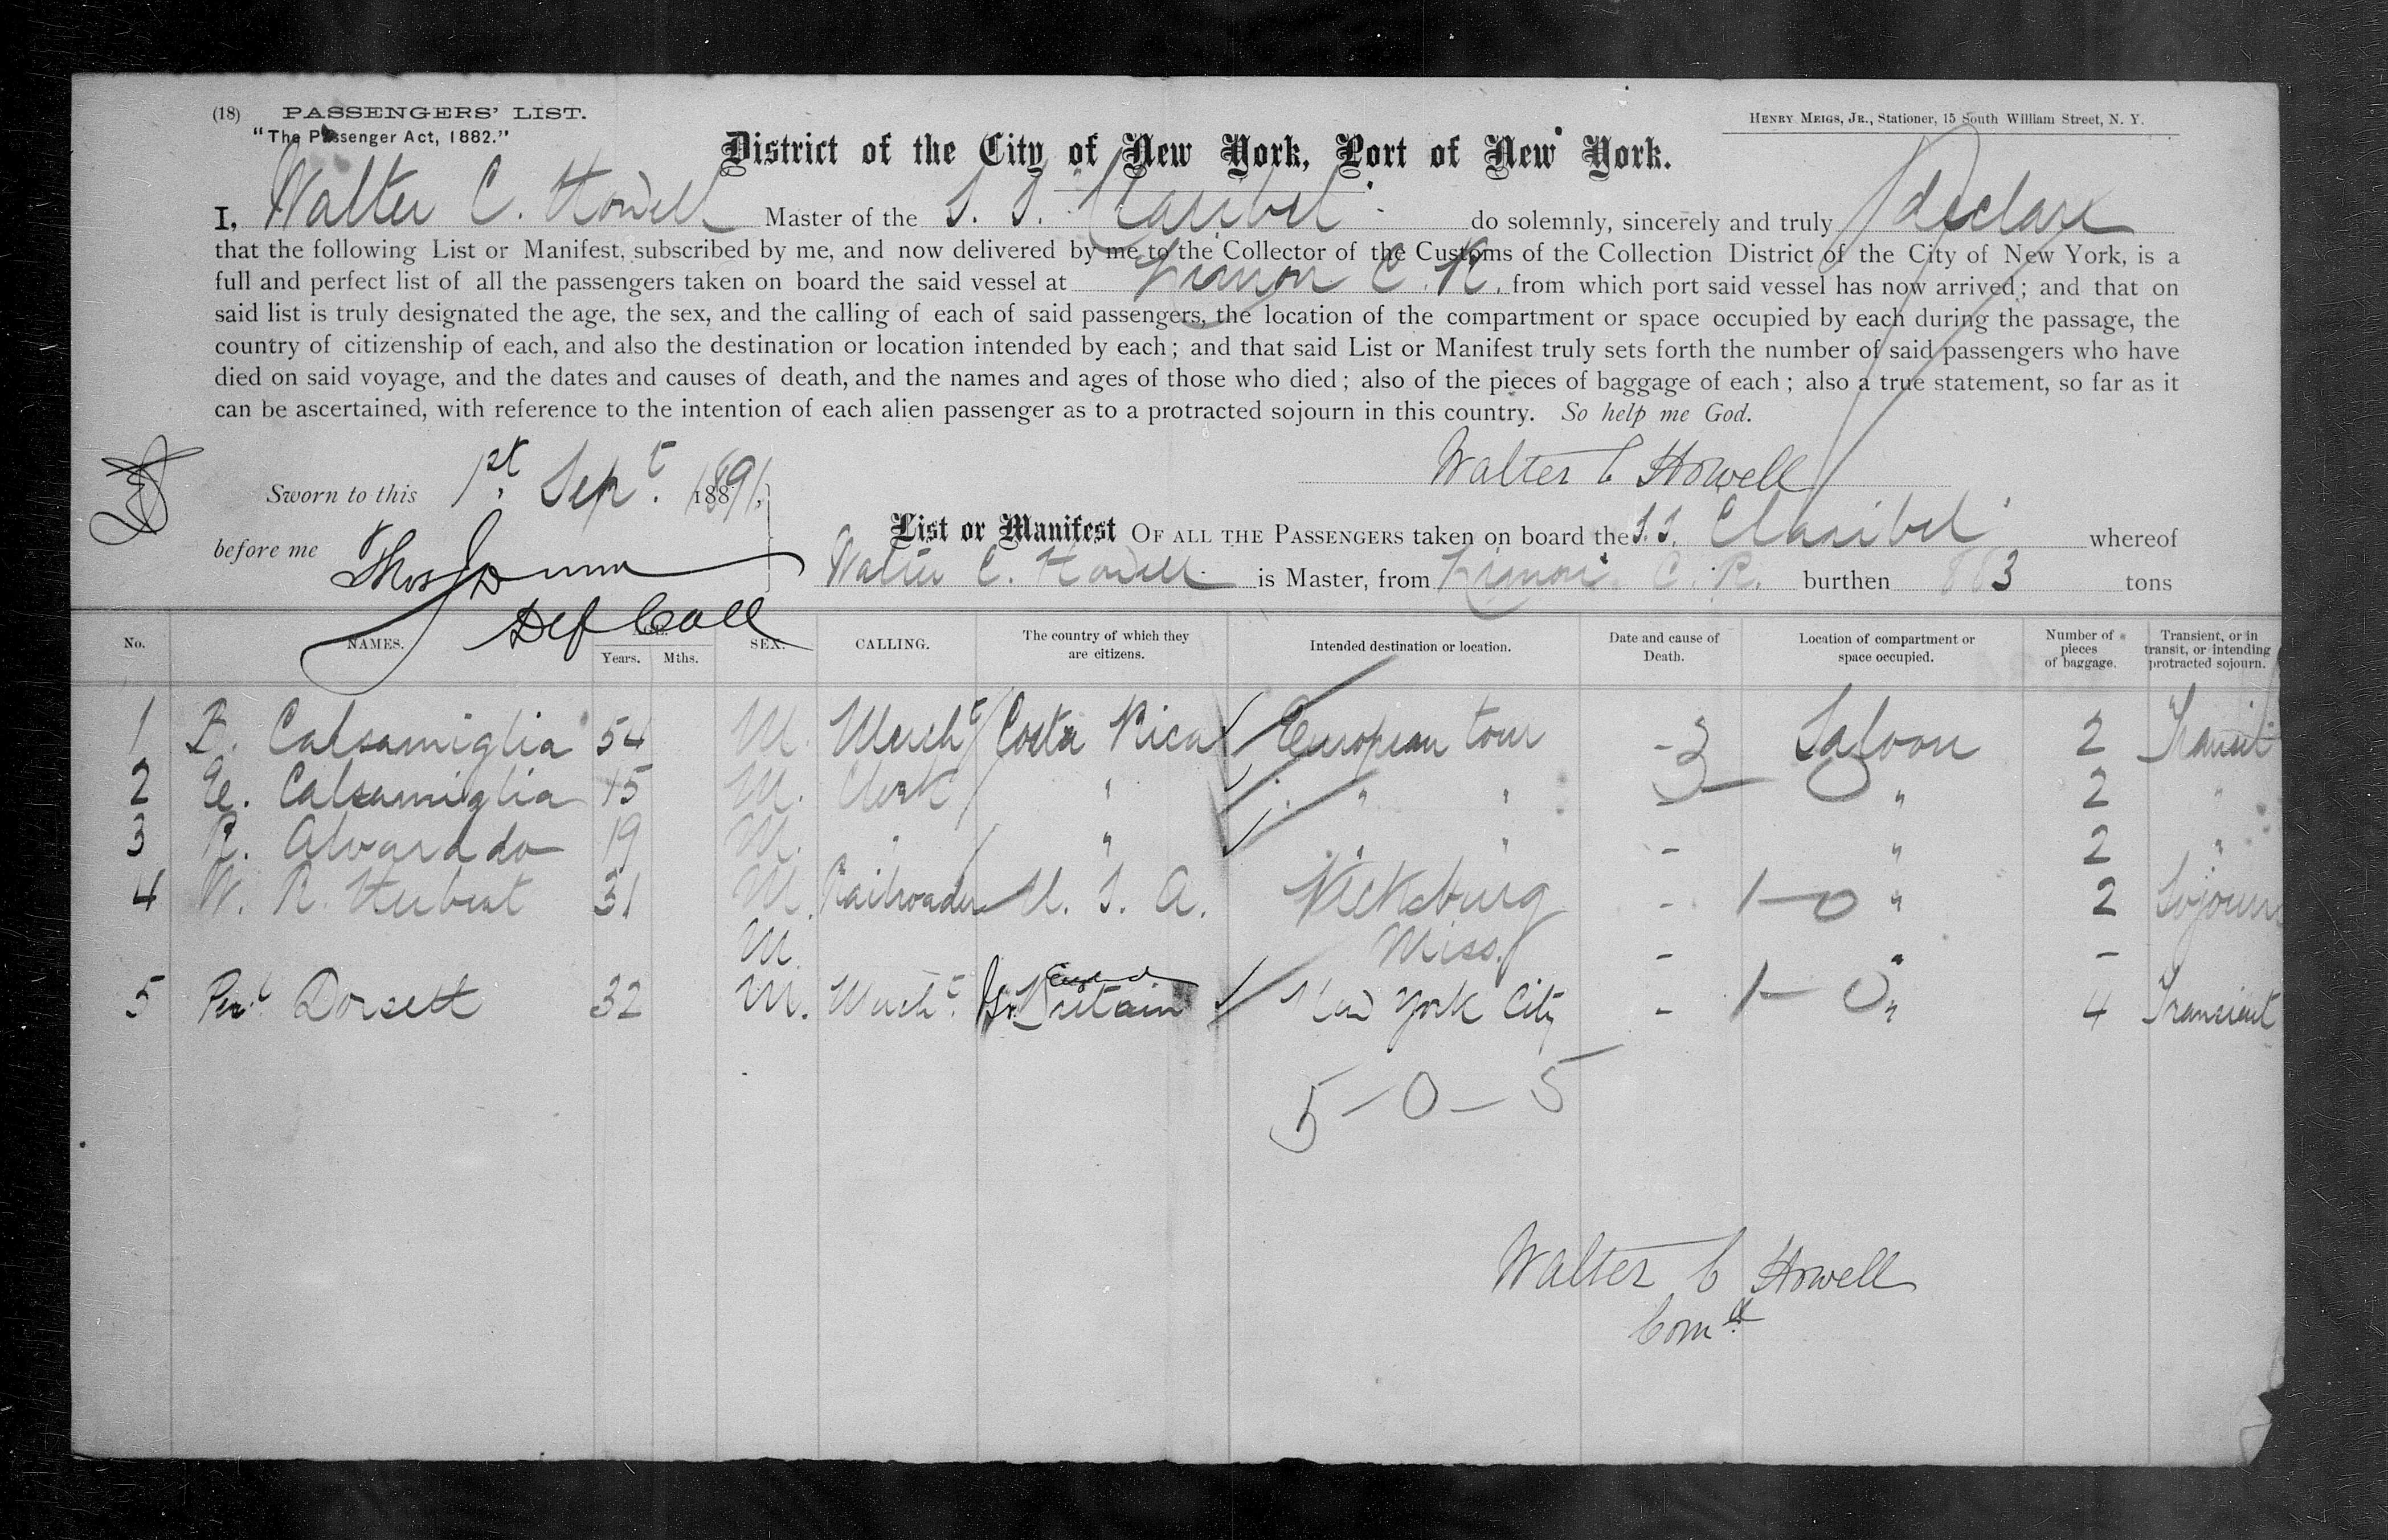 (18) PASSENGERS' LIST.
"The Passenger Act, 1882."
HENRY MEIGS, JR., Stationer, 15 South William Street, N. Y.
District of the City of New York, Port of New York.
I, Walter C. Howell Master of the S. S. Claribel do solemnly, sincerely and truly declare
that the following List or Manifest, subscribed by me, and now delivered by me to the Collector of the Customs of the Collection District of the City of New York, is a
full and perfect list of all the passengers taken on board the said vessel at Limon C. R. from which port said vessel has now arrived; and that on
said list is truly designated the age, the sex, and the calling of each of said passengers, the location of the compartment or space occupied by each during the passage, the
country of citizenship of each, and also the destination or location intended by each; and that said List or Manifest truly sets forth the number of said passengers who have
died on said voyage, and the dates and causes of death, and the names and ages of those who died; also of the pieces of baggage of each; also a true statement, so far as it
can be ascertained, with reference to the intention of each alien passenger as to a protracted sojourn in this country. So help me God.
Walter C Howell
Sworn to this 1st Sept. 1891,
before me Thos
Dep Coll
List or Manifest OF ALL THE PASSENGERS taken on board the S.S. Claribel whereof
Walter C. Howell is Master, from Limon C. R. burthen 883 tons
No. NAMES. AGE. Years. Mths. SEX. CALLING. The country of which they are citizens. Intended destination or location. Date and cause of Death. Location of compartment or space occupied. Number of pieces of baggage. Transient, or in transit, or intending protracted sojourn.
1 Calsamiglia 54 M. Mercht Costa Rica European tour - 3 Saloon 2 Transit
2 E. Calsamiglia 15 M. Clerk " " " - 0 " 2 "
3 R. Alvarado 19 M. " " " " - " 2 "
4 W. R. Herbert 31 M. Railroader U. S. A. Vicksburg - 1-0 " 2 Sojourn
M. Miss. - " -
5 Dorsett 32 M. Mercht. England Gt. Britain New York City - 1-0 " 4 Transient
5-0-5
Walter C Howell
Comdr